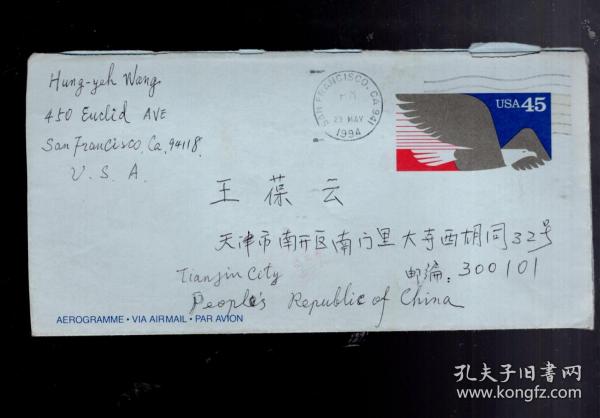 Hung-yeh Wang
450 Euclid AVE
San Francisco, Ca. 94118.
U. S. A.
SAN FRANCISCO, CA 941
PM
23 MAY
1994
USA 45
王葆云
天津市南开区南门里大寺西胡同32号
Tianjin City
邮编:300101
People's Republic of China
AEROGRAMME • VIA AIRMAIL • PAR AVION
孔夫子旧书网
www.kongfz.com